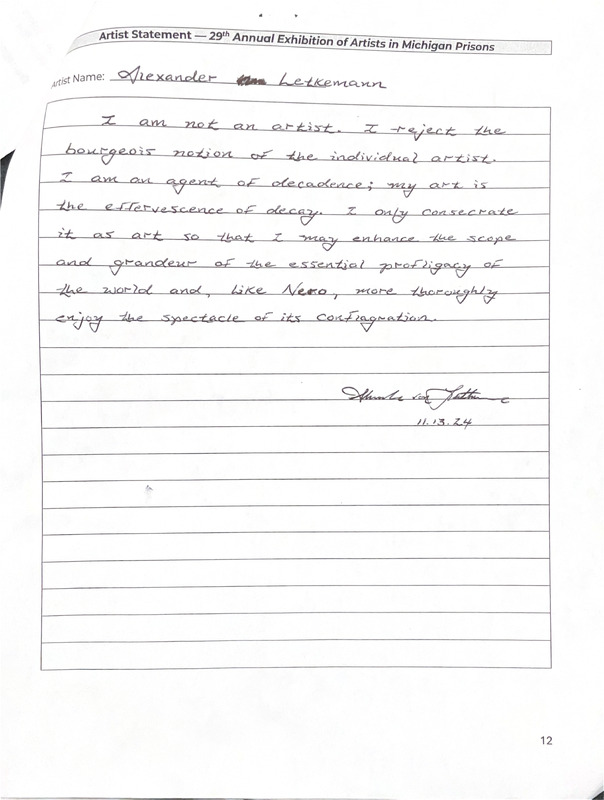 Artist Statement — 29th Annual Exhibition of Artists in Michigan Prisons
Artist Name: Alexander Letkemann
I am not an artist. I reject the
bourgeois notion of the individual artist.
I am an agent of decadence; my art is
the effervescence of decay. I only consecrate
it as art so that I may enhance the scope
and grandeur of the essential profligacy of
the world and, like Nero, more thoroughly
enjoy the spectacle of its conflagration.
11.13.24
12